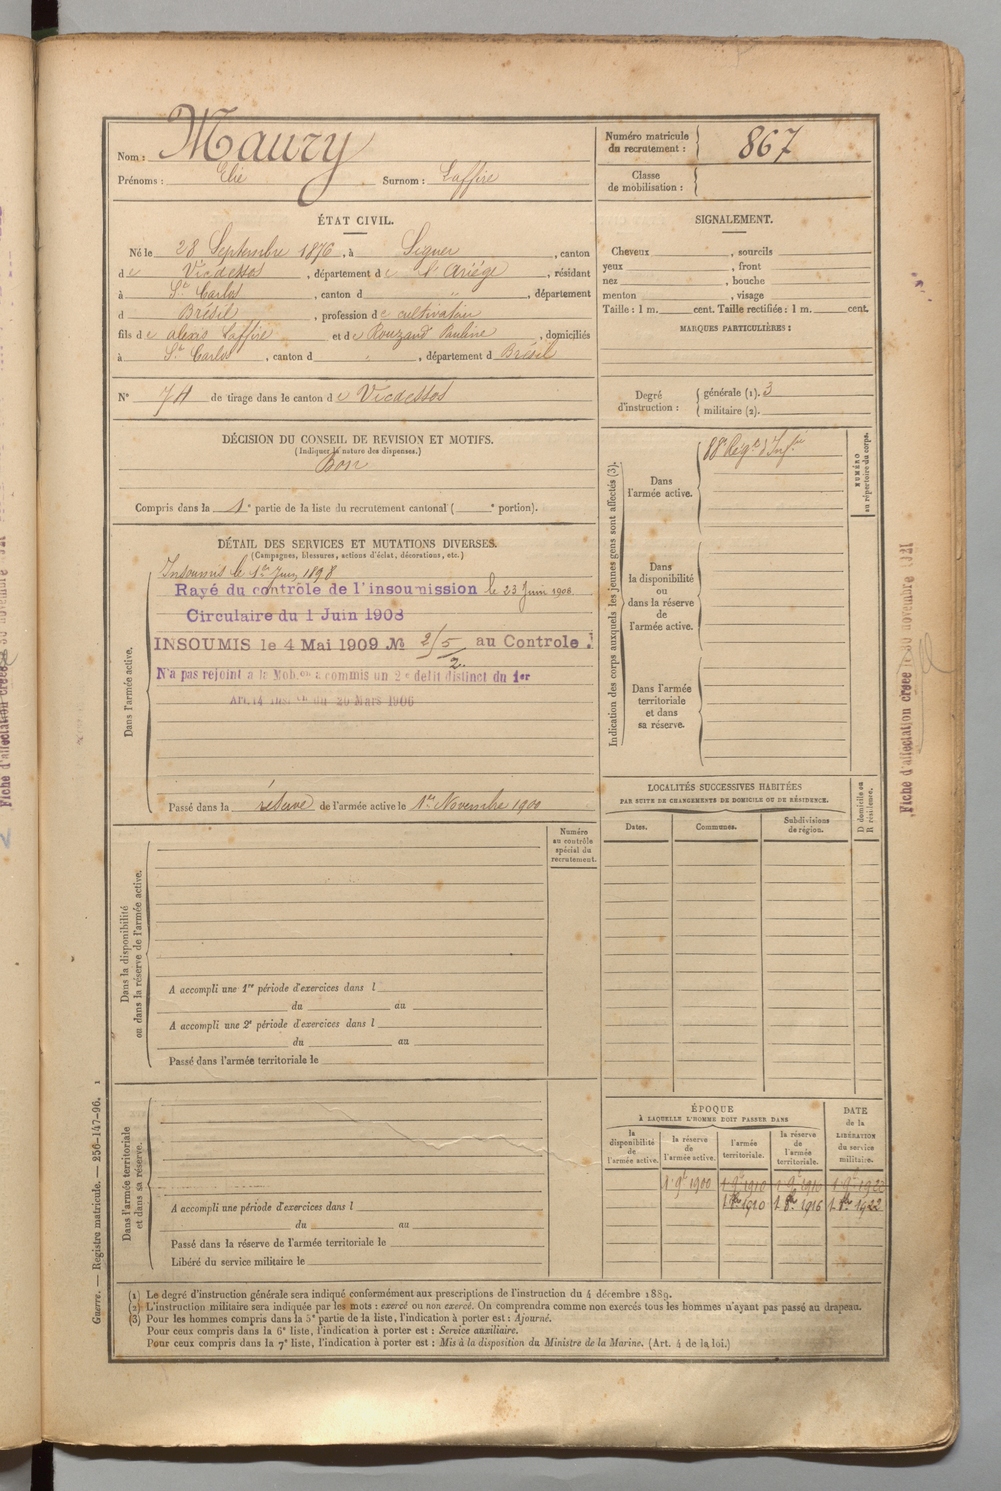 Nom : Maury
Prénoms : Elie Surnom : Laffire
Numéro matricule du recrutement : 867
Classe de mobilisation :
ÉTAT CIVIL.
Né le 28 Septembre 1876, à Siguer, canton
de Vicdessos, département de l'Ariége, résidant
à St Carlos, canton d ", département
d Brésil, profession de cultivateur
fils de Alexis Laffire et de Rouzaud Pauline, domiciliés
à St Carlos, canton d ", département d Brésil
N° 74 de tirage dans le canton de Vicdessos
DÉCISION DU CONSEIL DE REVISION ET MOTIFS.
(Indiquer la nature des dispenses.)
Bon
Compris dans la 1e partie de la liste du recrutement cantonal ( e portion).
SIGNALEMENT.
Cheveux , sourcils
yeux , front
nez , bouche
menton , visage
Taille : 1 m. cent. Taille rectifiée : 1 m. cent.
MARQUES PARTICULIÈRES :
Degré d'instruction : générale (1). 3
militaire (2).
DÉTAIL DES SERVICES ET MUTATIONS DIVERSES.
(Campagnes, blessures, actions d'éclat, décorations, etc.)
Dans l'armée active.
Insoumis le 1er Juin 1898
Rayé du contrôle de l'insoumission le 23 Juin 1908.
Circulaire du 1 Juin 1908
INSOUMIS le 4 Mai 1909 No 2/5 au Controle
2.
N'a pas rejoint à la Mob.on a commis un 2e délit distinct du 1er
Art. 14 du 26 Mars 1906
Passé dans la réserve de l'armée active le 1er Novembre 1900
Indication des corps auxquels les jeunes gens sont affectés (3).
Dans l'armée active.
88e Régt d'Infie
NUMÉRO au répertoire du corps.
Dans la disponibilité ou dans la réserve de l'armée active.
Dans l'armée territoriale et dans sa réserve.
Fiche d'affectation créée le 30 novembre 1921
LOCALITÉS SUCCESSIVES HABITÉES
PAR SUITE DE CHANGEMENTS DE DOMICILE OU DE RÉSIDENCE.
D domicile ou R résidence.
Dates. Communes. Subdivisions de région.
Dans la disponibilité ou dans la réserve de l'armée active.
Numéro au contrôle spécial du recrutement.
A accompli une 1re période d'exercices dans l
du au
A accompli une 2e période d'exercices dans l
du au
Passé dans l'armée territoriale le
Dans l'armée territoriale et dans sa réserve.
A accompli une période d'exercices dans l
du au
Passé dans la réserve de l'armée territoriale le
Libéré du service militaire le
ÉPOQUE
À LAQUELLE L'HOMME DOIT PASSER DANS
la disponibilité de l'armée active. la réserve de l'armée active. l'armée territoriale. la réserve de l'armée territoriale.
DATE de la LIBÉRATION du service militaire.
1 9bre 1900 1 9bre 1910 1 9bre 1916 1 9bre 1922
1 8bre 1910 1 8bre 1916 1 8bre 1922
Guerre. — Registre matricule. — 256-147-96. 1
(1) Le degré d'instruction générale sera indiqué conformément aux prescriptions de l'instruction du 4 décembre 1889.
(2) L'instruction militaire sera indiquée par les mots : exercé ou non exercé. On comprendra comme non exercés tous les hommes n'ayant pas passé au drapeau.
(3) Pour les hommes compris dans la 5e partie de la liste, l'indication à porter est : Ajourné.
Pour ceux compris dans la 6e liste, l'indication à porter est : Service auxiliaire.
Pour ceux compris dans la 7e liste, l'indication à porter est : Mis à la disposition du Ministre de la Marine. (Art. 4 de la loi.)